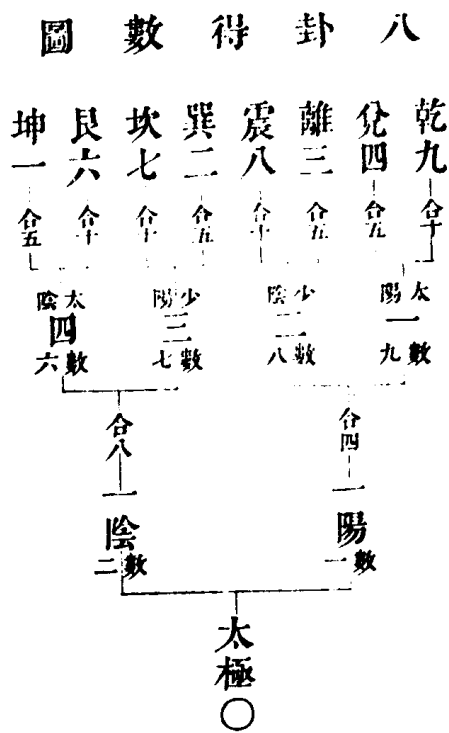 八卦得數圖
乾九 合十
兌四 合五
離三 合五
震八 合十
巽二 合五
坎七 合十
艮六 合十
坤一 合五
太陽一數九
少陰二數八
少陽三數七
太陰四數六
合四
合八
一陽數一
一陰數二
太極